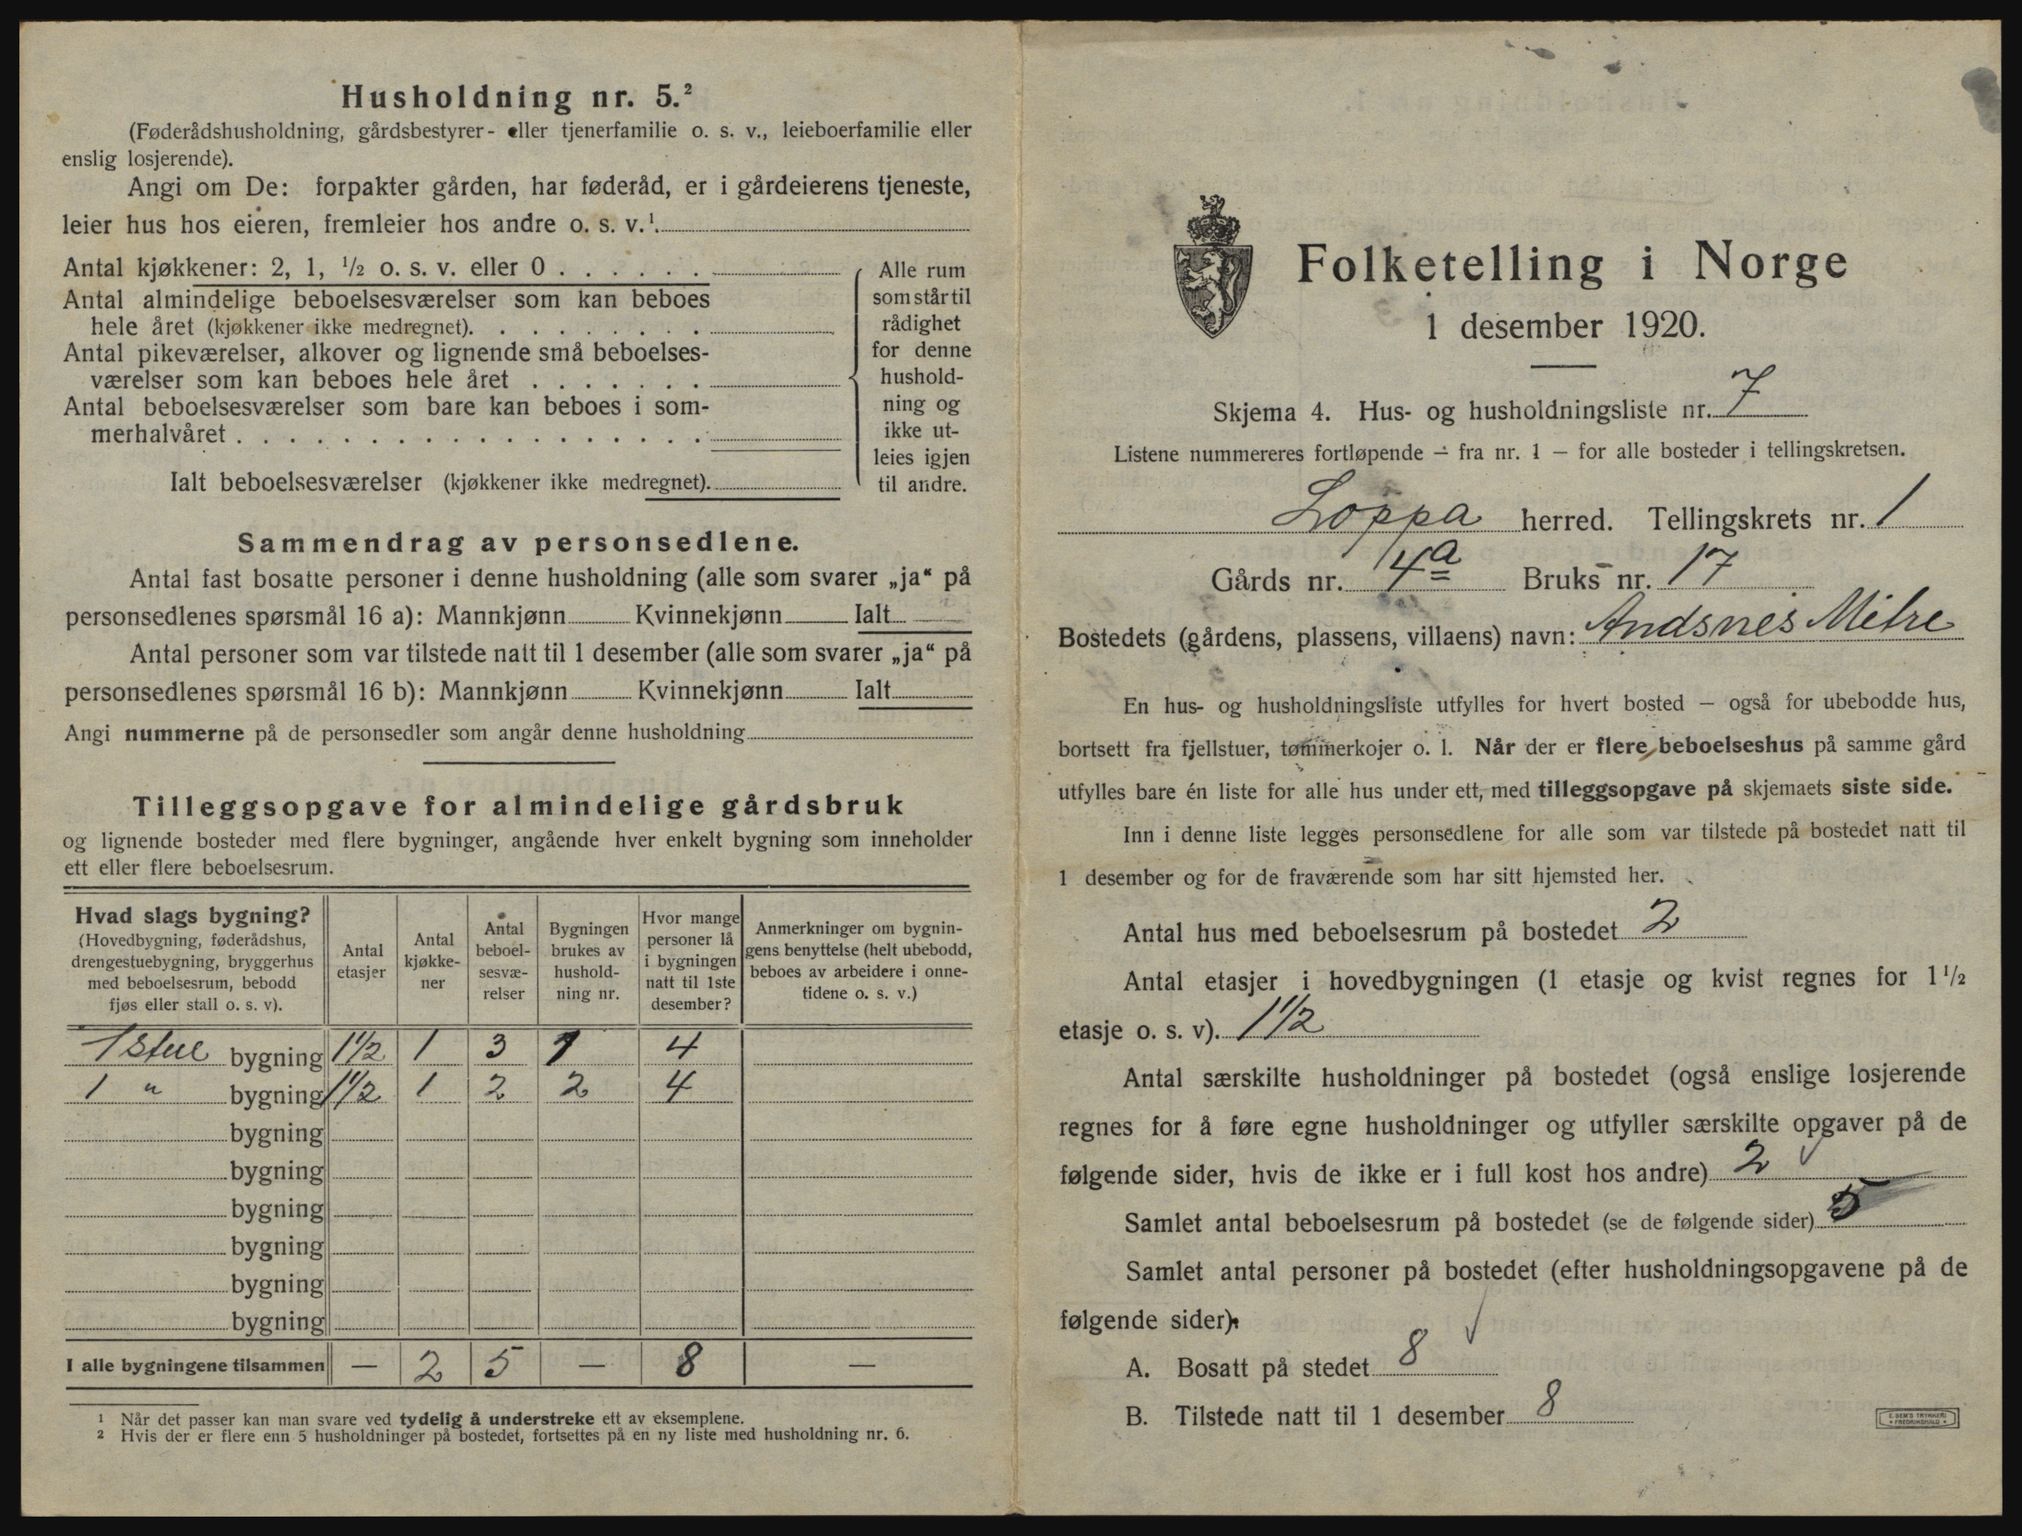 Husholdning nr. 5.²
(Føderådshusholdning, gårdsbestyrer- eller tjenerfamilie o. s. v., leieboerfamilie eller
enslig losjerende).
Angi om De: forpakter gården, har føderåd, er i gårdeierens tjeneste,
leier hus hos eieren, fremleier hos andre o. s. v.¹.
Antal kjøkkener: 2, 1, ¹/₂ o. s. v. eller 0 . . . . . .
Antal almindelige beboelsesværelser som kan beboes
hele året (kjøkkener ikke medregnet). . . . . . . . .
Antal pikeværelser, alkover og lignende små beboelses-
værelser som kan beboes hele året . . . . . . .
Antal beboelsesværelser som bare kan beboes i som-
merhalvåret . . . . . . . . . . . . . . . . . .
Ialt beboelsesværelser (kjøkkener ikke medregnet).
Alle rum
som står til
rådighet
for denne
hushold-
ning og
ikke ut-
leies igjen
til andre.
Sammendrag av personsedlene.
Antal fast bosatte personer i denne husholdning (alle som svarer „ja“ på
personsedlenes spørsmål 16 a): Mannkjønn Kvinnekjønn Ialt
Antal personer som var tilstede natt til 1 desember (alle som svarer „ja“ på
personsedlenes spørsmål 16 b): Mannkjønn Kvinnekjønn Ialt
Angi nummerne på de personsedler som angår denne husholdning
Tilleggsopgave for almindelige gårdsbruk
og lignende bosteder med flere bygninger, angående hver enkelt bygning som inneholder
ett eller flere beboelsesrum.
Hvad slags bygning?
(Hovedbygning, føderådshus,
drengestuebygning, bryggerhus
med beboelsesrum, bebodd
fjøs eller stall o. s. v).
Antal
etasjer
Antal
kjøkke-
ner
Antal
beboel-
sesvæ-
relser
Bygningen
brukes av
hushold-
ning nr.
Hvor mange
personer lå
i bygningen
natt til 1ste
desember?
Anmerkninger om bygnin-
gens benyttelse (helt ubebodd,
beboes av arbeidere i onne-
tidene o. s. v.)
1 Stue bygning 1 1/2 1 3 1 4
1 " bygning 1 1/2 1 2 2 4
bygning
bygning
bygning
bygning
bygning
bygning
I alle bygningene tilsammen — 2 5 — 8 —
¹ Når det passer kan man svare ved tydelig å understreke ett av eksemplene.
² Hvis der er flere enn 5 husholdninger på bostedet, fortsettes på en ny liste med husholdning nr. 6.
Folketelling i Norge
1 desember 1920.
Skjema 4. Hus- og husholdningsliste nr. 7
Listene nummereres fortløpende – fra nr. 1 – for alle bosteder i tellingskretsen.
Loppa herred. Tellingskrets nr. 1
Gårds nr. 4a Bruks nr. 17
Bostedets (gårdens, plassens, villaens) navn: Andsnes Mitre
En hus- og husholdningsliste utfylles for hvert bosted – også for ubebodde hus,
bortsett fra fjellstuer, tømmerkojer o. l. Når der er flere beboelseshus på samme gård
utfylles bare én liste for alle hus under ett, med tilleggsopgave på skjemaets siste side.
Inn i denne liste legges personsedlene for alle som var tilstede på bostedet natt til
1 desember og for de fraværende som har sitt hjemsted her.
Antal hus med beboelsesrum på bostedet 2
Antal etasjer i hovedbygningen (1 etasje og kvist regnes for 1 ¹/₂
etasje o. s. v). 1 1/2
Antal særskilte husholdninger på bostedet (også enslige losjerende
regnes for å føre egne husholdninger og utfyller særskilte opgaver på de
følgende sider, hvis de ikke er i full kost hos andre) 2
Samlet antal beboelsesrum på bostedet (se de følgende sider) 5
Samlet antal personer på bostedet (efter husholdningsopgavene på de
følgende sider):
A. Bosatt på stedet 8
B. Tilstede natt til 1 desember 8
E. SEM'S TRYKKERI
FREDRIKSHALD